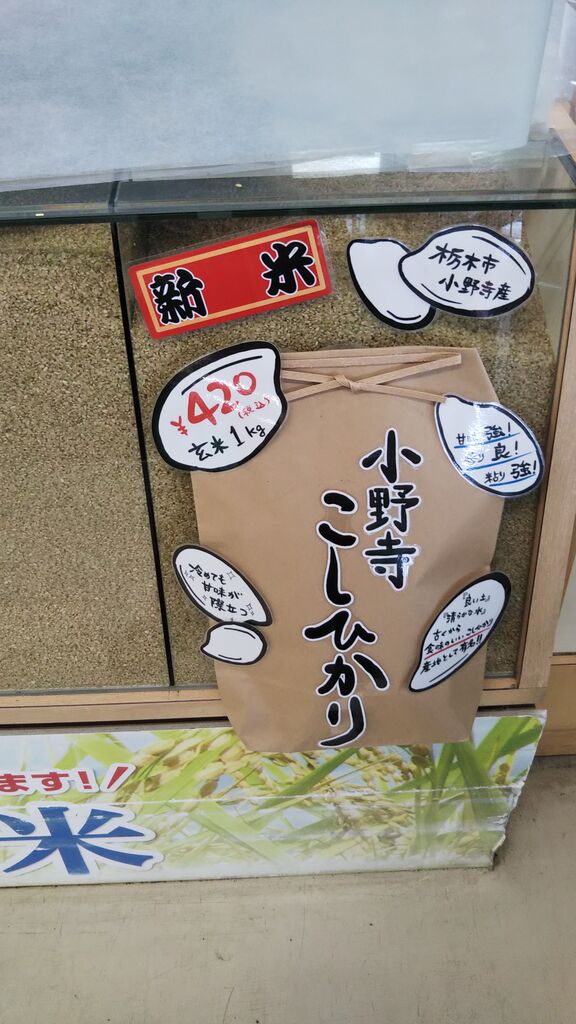 新 米
栃木市
小野寺産
¥420
(税込)
玄米1kg
甘味 強!
香り 良!
粘り 強!
小野寺
こしひかり
冷めても
甘味が
際立つ
『良い土』
『清らかな水』
古くから
食味のいいこしひかり
産地として有名!!
ます!
米